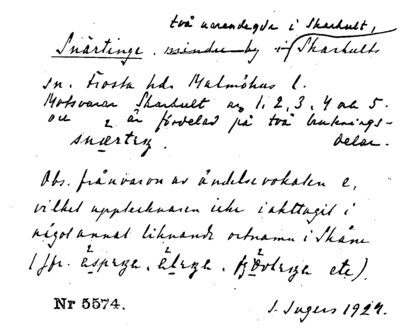 två urendegda i Skarhult,
Snärtinge. mindre by i Skarhults
sn. Frosta hd. Malmöhus l.
Motsvarar Skarhult nr 1, 2, 3, 4 och 5.
och är fördelad på två bruknings-
delar.
Obs. frånvaron av ändelsevokalen e,
vilket upptecknaren icke iakttagit i
något annat liknande ortnamn i Skåne
(jfr. etc).
Nr 5574.
J. Ingers 1924.